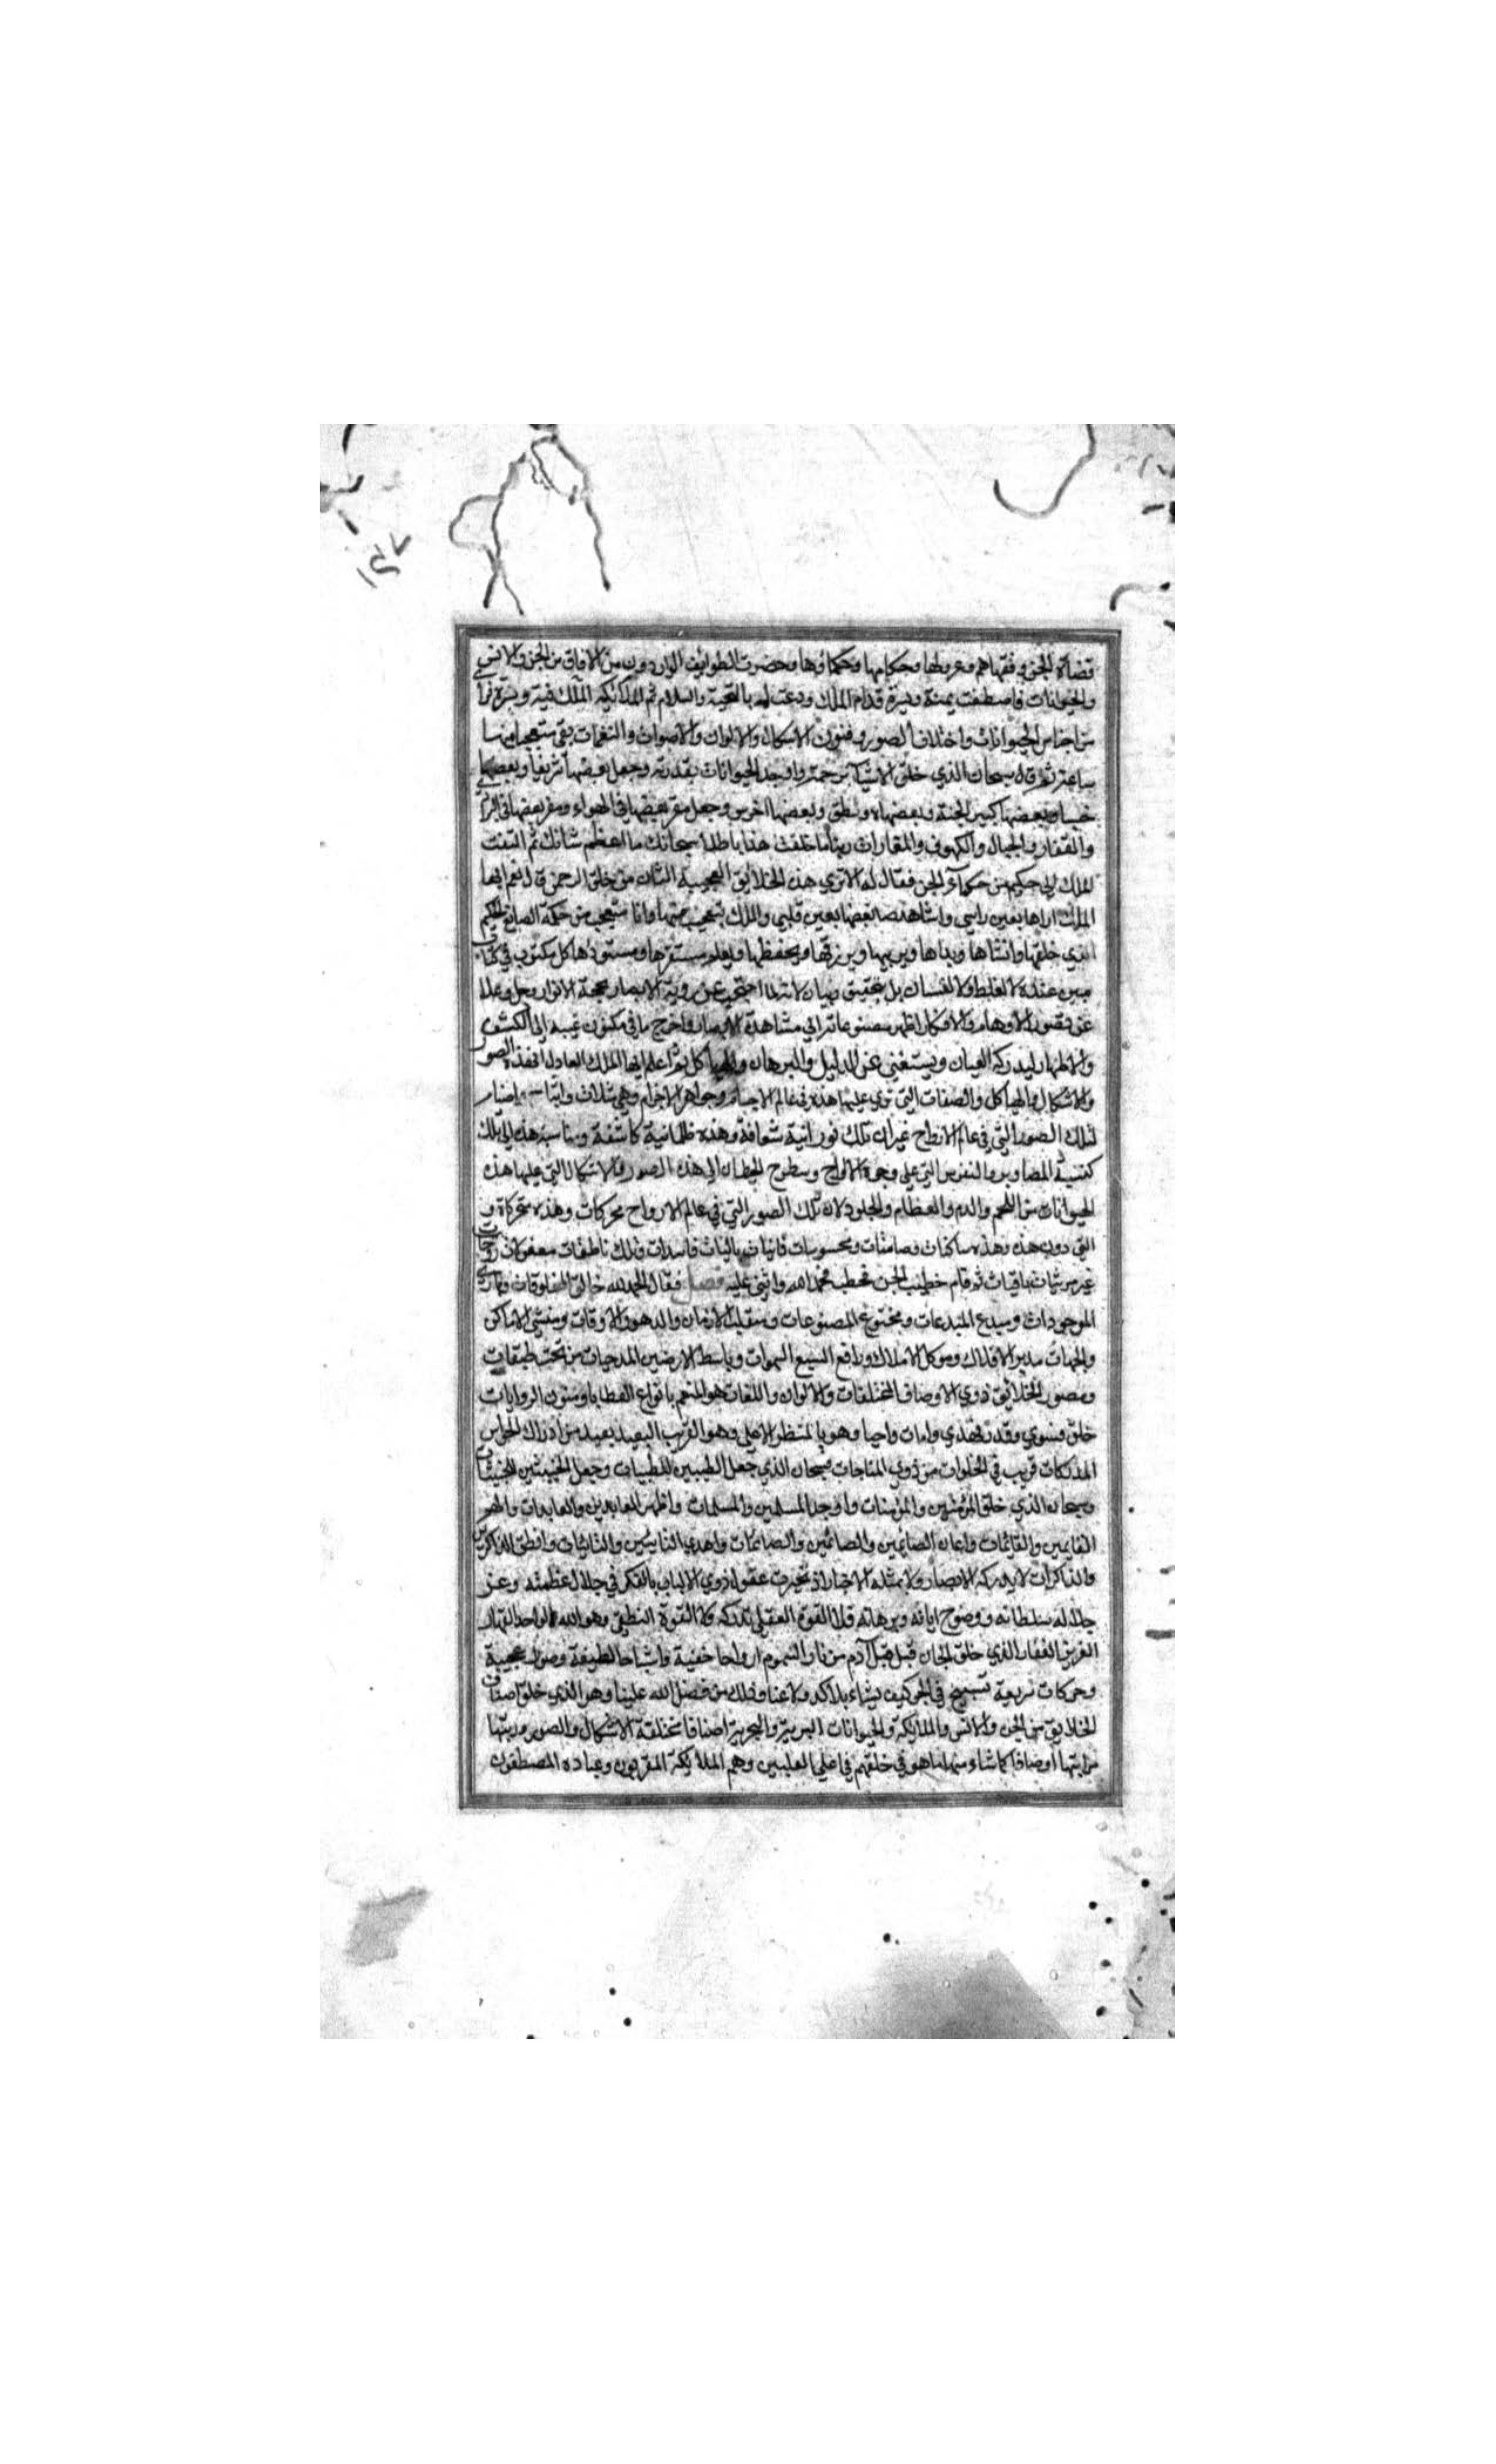 قضاة الجن وفقهاهم وعدولها وحكامها وحكماؤها وحضرت الطوايف الواردون من الافاق من الجن والانس
والحيوانات فاصطفت يمنة ويسرة قدام الملك ودعت له بالتحية والسلام ثم الملك يمنة ويسرة فرأ
من اجناس الحيوانات واختلاف الصور وفنون الاشكال والالوان والاصوات والنغمات بقي متعجبا منها
ساعة ثم قال سبحان الذي خلق الاشيآء برحمته واوجد الحيوانات بقدرته وجعل بعضها شريفا وبعضها
خسيسا وبعضها كبير الجثة وبعضها وبعضها اخرس وجعل مقر بعضها في الهواء ومقر بعضها في
والقفار والجبال والكهوف والمغارات ربنا ما خلقت هذا باطلا سبحانك ما اعظم شانك ثم التفت
الملك الي حكيم من حكمآء الجن فقال له الا تري هذه الخلايق العجيبة الشان من خلق الرحمن قال نعم ايها
الملك اراها بعين راسي واشاهد صانعها بعين قلبي والملك يتعجب منها وانا متعجب من حكمة الصانع الحكيم
الذي خلقها وانشاها وبداها ويربيها ويرزقها ويحفظها ويعلم مستقرها ومستودعها كل مكتوب في كتاب
مبين عنده لا لغلط ولا لنسيان بل تحقيق وبيان لانه لما احتجب عن روية الابصار بحجة الانوار وجل وعلا
عن تصور الاوهام والافكار اظهر مصنوعاته الي مشاهدة الابصار واخرج ما في مكنون غيبه الي الكشف
والاظهار ليدركه العيان ويستغني عن الدليل والبرهان ثم اعلم ايها الملك العادل ان هذه الصور
والاشكال والهياكل والصفات التي تري عليها هذه في عالم الاجسام وجواهر الاجرام وهي مثلات واشباح
لتلك الصور التي في عالم الارواح غير ان تلك نورانية شفافة وهذه ظلمانية كاشفة ومناسبة هذه الي تلك
كنسبة التصاوير والنقوش التي علي وجوه الالواح وسطوح الحيطان الي هذه الصور والاشكال التي عليها هذه
الحيوانات من اللحم والدم والعظام والجلود لان تلك الصور التي في عالم الارواح محركات وهذه متحركة و
التي دون هذه وهذه ساكنات وصامتات ومحسوسات فانيات باليات فاسدات وتلك ناطقات معقولات روحانيات
غير مرئيات باقيات ثم قام خطيب الجن فخطب فحمد الله واثني عليه فصل فقال الحمد لله خالق المخلوقات وباري
الموجودات ومبدع المبدعات ومخترع المصنوعات ومقلب الازمان والدهور والاوقات ومنشي الاماكن
والجهات مدبر الافلاك وموكل الاملاك ورافع السبع السموات وباسط الارضين المدحيات من تحت طبقات
ومصور الخلايق ذوي الاوصاف المختلفات والالوان واللغات هو المنعم بانواع العطايا وفنون الروايات
خلق فسوي وقدر فهدي وامات واحيا وهو بالمنظر الاعلي وهو القريب البعيد بعيد من ادراك الحواس
المدركات قريب في الخلوات من ذوي المناجات فسبحان الذي جعل الطيبين للطيبات وجعل الخبيثين للخبيثات
وسبحان الذي خلق المؤمنين والمؤمنات واوجد المسلمين والمسلمات واظهر العابدين والعابدات
القايمين والقائمات واعان الصايمين والصائمين والصائمات واهدي التايبين والتائبات وانطق الذاكرين
والذاكرات لا يدركه الابصار ولا يمثله الاخبار اذ تحيرت عقول ذوي الالباب بالفكر في جلال عظمته وعز
جلاله سلطانه ووضوح اياته وبرهانه فلا القوة العقلي تدركه ولا القوة النطقي وهو الله الواحد القهار
العزيز الغفار الذي خلق الجان قبل ادم من نار السموم ارواحا خفية واشباحا لطيفة وصورا عجيبة
وحركات سريعة تسبح في الجو كيف يشاء بلا كد ولا عنا وذلك من فضل الله علينا وهو الذي خلق اصناف
الخلايق من الجن والانس والملايكة والحيوانات البرية والبحرية اصنافا مختلفة الاشكال والصور ورتبها
مراتبها اوصافا كما شاء منها ما هو في خلقهم في اعلي العليين وهم الملايكة المقربون وعباده المصطفون